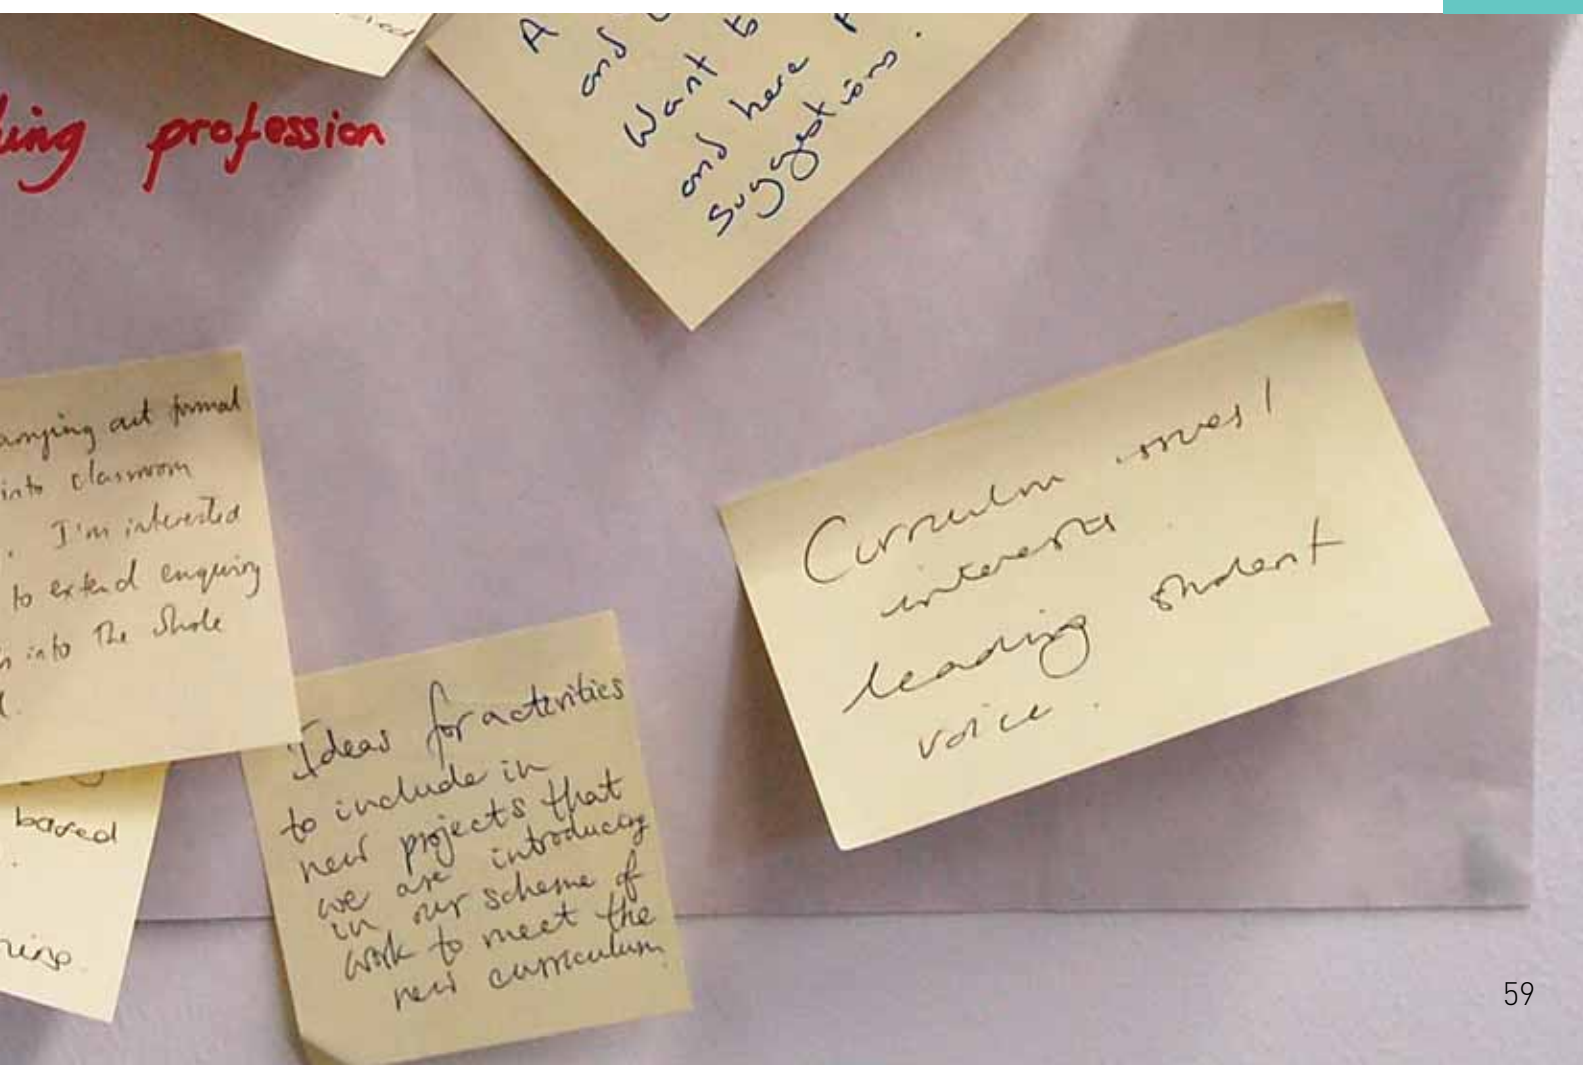 A
and
Want to
and have
suggestions.
profession
out formal
into classroom
. I'm interested
to extend enquiry
into the whole
Ideas for activities
to include in
new projects that
we are introducing
in our scheme of
work to meet the
new curriculum
Curriculum issues/
interests
leading student
voice.
based
59